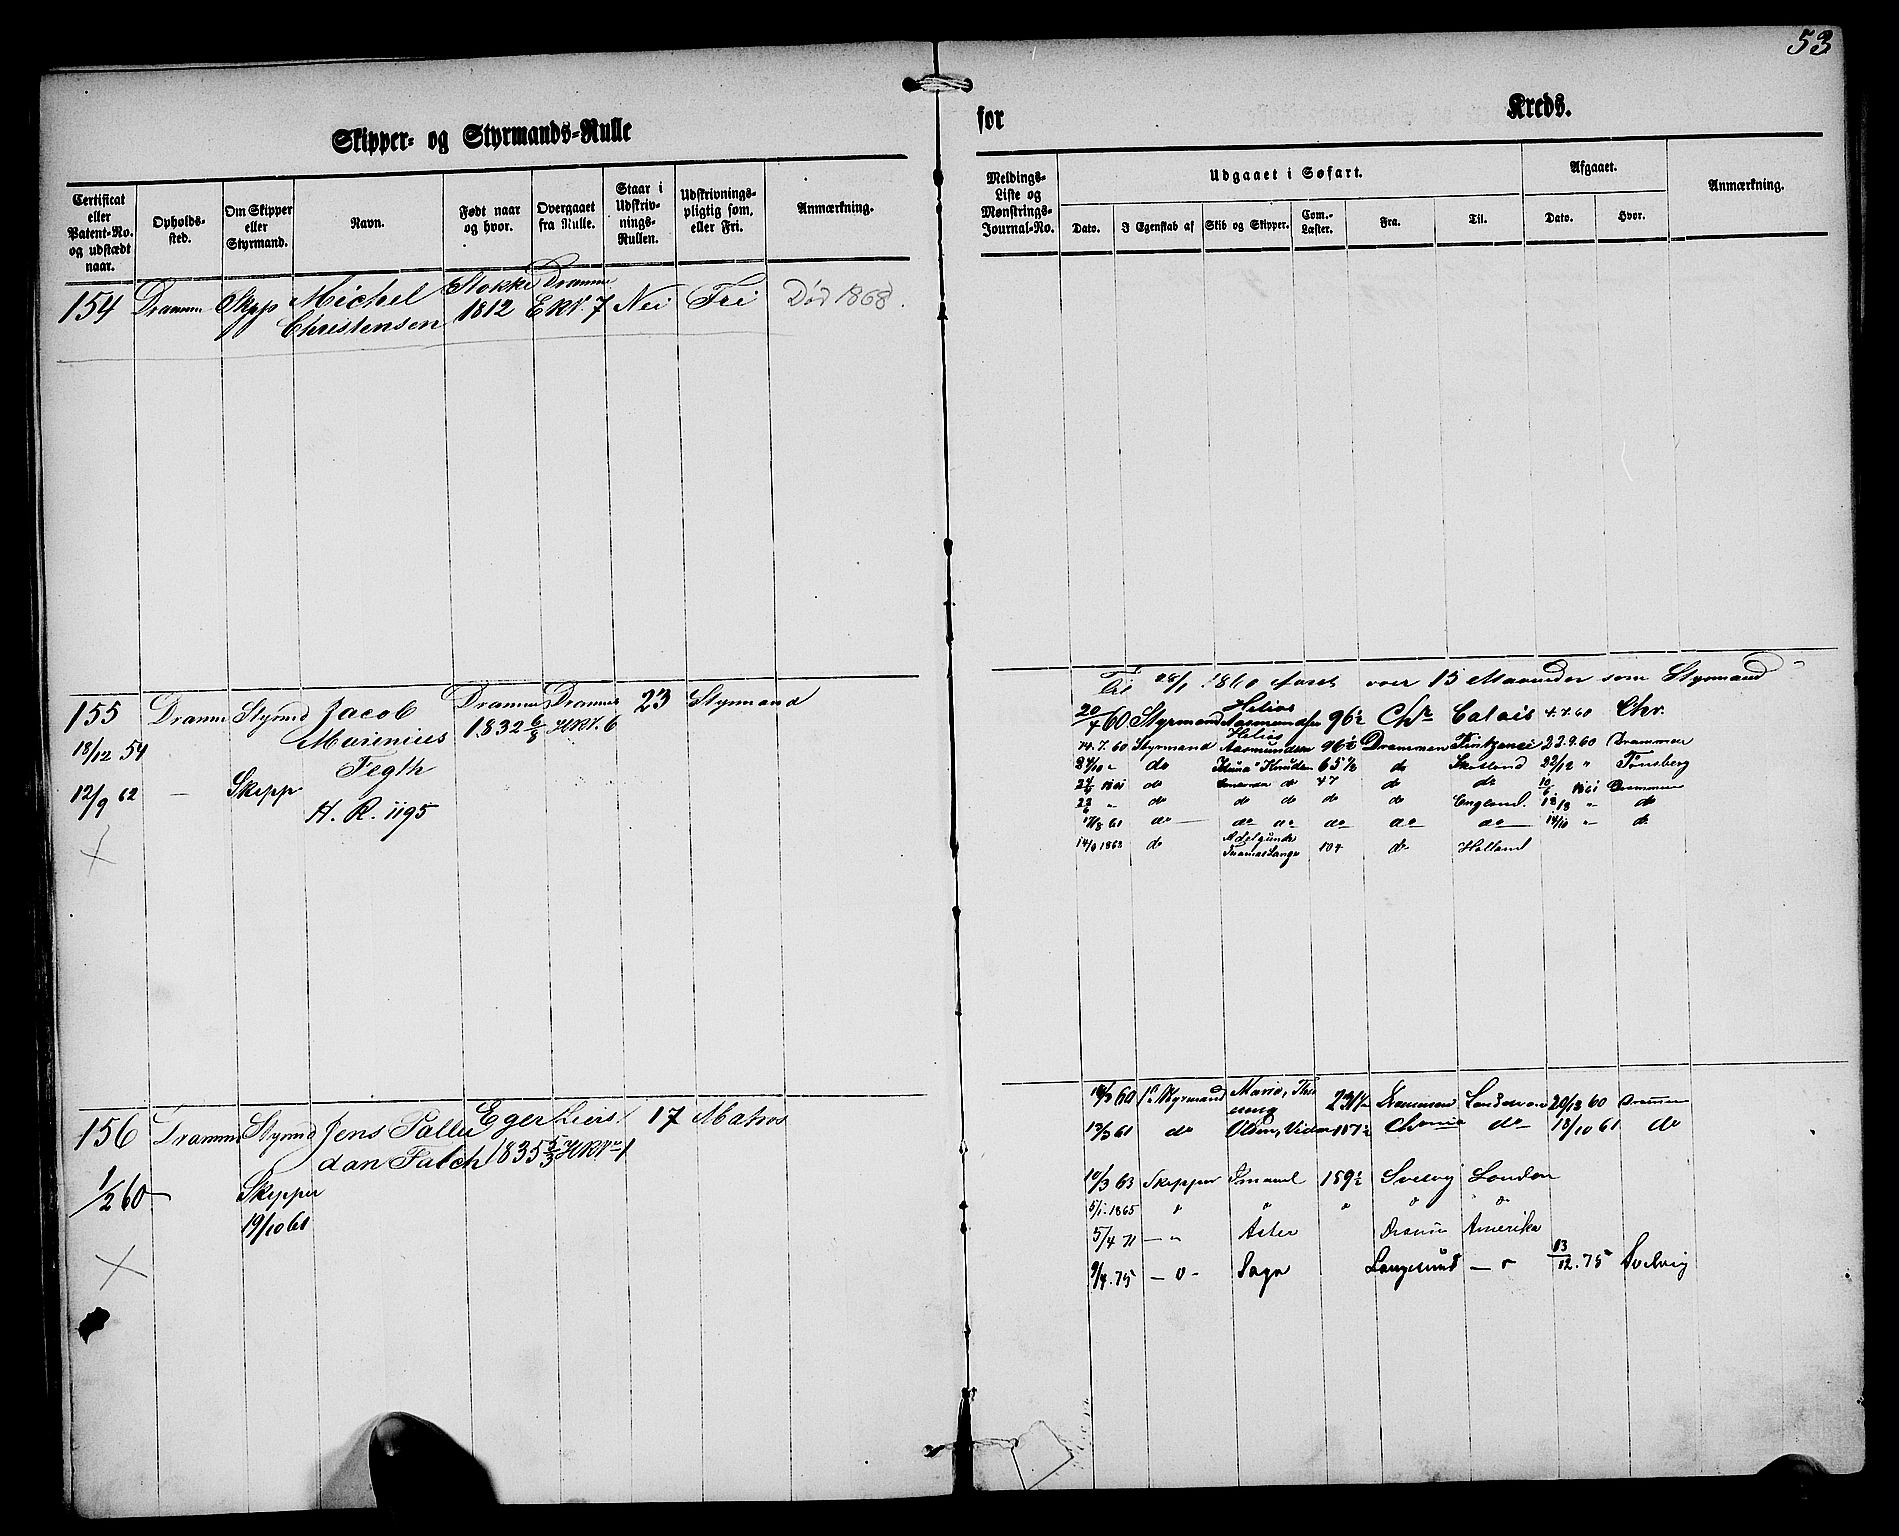 53
Skipper- og Styrmands-Rulle
for Kreds.
Certificat eller Patent-No. og udstædt naar.
Opholds-sted.
Om Skipper eller Styrmand.
Navn.
Født naar og hvor.
Overgaaet fra Rulle.
Staar i Udskriv-nings-Rullen.
Udskrivnings-pligtig som, eller Fri.
Anmærkning.
Meldings-Liste og Mønstrings-Journal-No.
Udgaaet i Søfart.
Afgaaet.
Anmærkning.
Dato. I Egenskab af Skib og Skipper. Com.-Læster. Fra. Til. Dato. Hvor.
154 Dramm Skipp Michel Stokke Dramm Nei Fri Død 1868.
Christensen 1812 7
Til 1860 faret over 15 Maaneder som Styrmand
155 Dramm Styrmd Jacob Dramm Dramm 23 Styrmand
Marenius 1832 6/8 6
18/12 54
Fegth
12/9 62 — Skipp
H. R. 1195
Helias
20/4 60 Styrmand Aasmundsen 96½ Chr Calais 4.7.60 Chr.
Helias
14.7.60 Styrmand Aasmundsen 96½ Drammen 23.9.60 Drammen
24/10 " do Knudsen 65½ do Skotland 22/12 " Tønsberg
1861 do do 47 do do 1861 Drammen
" do do do do do England. 13/8 " do
17/8 61 do do do do do do 14/10 " do
1863 do Adelgunde Thomas Lange 104 do Holland
156 Dramm Styrmd Jens Palle Eger 17 Matros
dan Falch 1835 5/3
1/2 60 — Skipper
19/10 61
60 1ste Styrmand Maria, 231½ Drammen London 20/12 60 Drammen
13/3 61 do 157½ Chania do 18/10 61 do
10/3 63 Skipper Imanl 159½ Svelvig London
5/1. 1865 " " " " "
5/4 71 — " Aster Dramn Amerika
9/4. 75 — " — Saga Langesund — " 13/12. 75 Svelvig